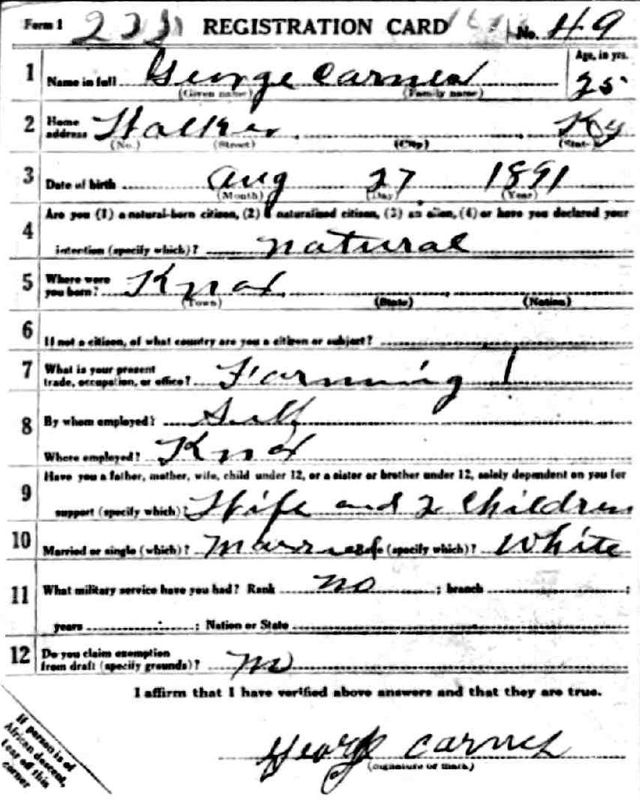 Form 1 REGISTRATION CARD No. 49
Age, in yrs.
1 Name in full George Carnes 25
(Given name) (Family name)
2 Home address Walker Ky
(No.) (Street) (City) (State)
3 Date of birth Aug 27 1891
(Month) (Day) (Year)
Are you (1) a natural-born citizen, (2) a naturalized citizen, (3) an alien, (4) or have you declared your
4 intention (specify which)? natural
5 Where were you born? Knox
(Town) (State) (Nation)
6 If not a citizen, of what country are you a citizen or subject?
7 What is your present trade, occupation, or office? Farming
8 By whom employed? Self
Where employed? Knox
Have you a father, mother, wife, child under 12, or a sister or brother under 12, solely dependent on you for
9 support (specify which) Wife and 2 children
10 Married or single (which)? Married (specify which)? White
11 What military service have you had? Rank no ; branch ;
years ; Nation or State
12 Do you claim exemption from draft (specify grounds)? no
I affirm that I have verified above answers and that they are true.
George Carnes
(Signature or mark)
If person is of
African descent,
tear off this
corner